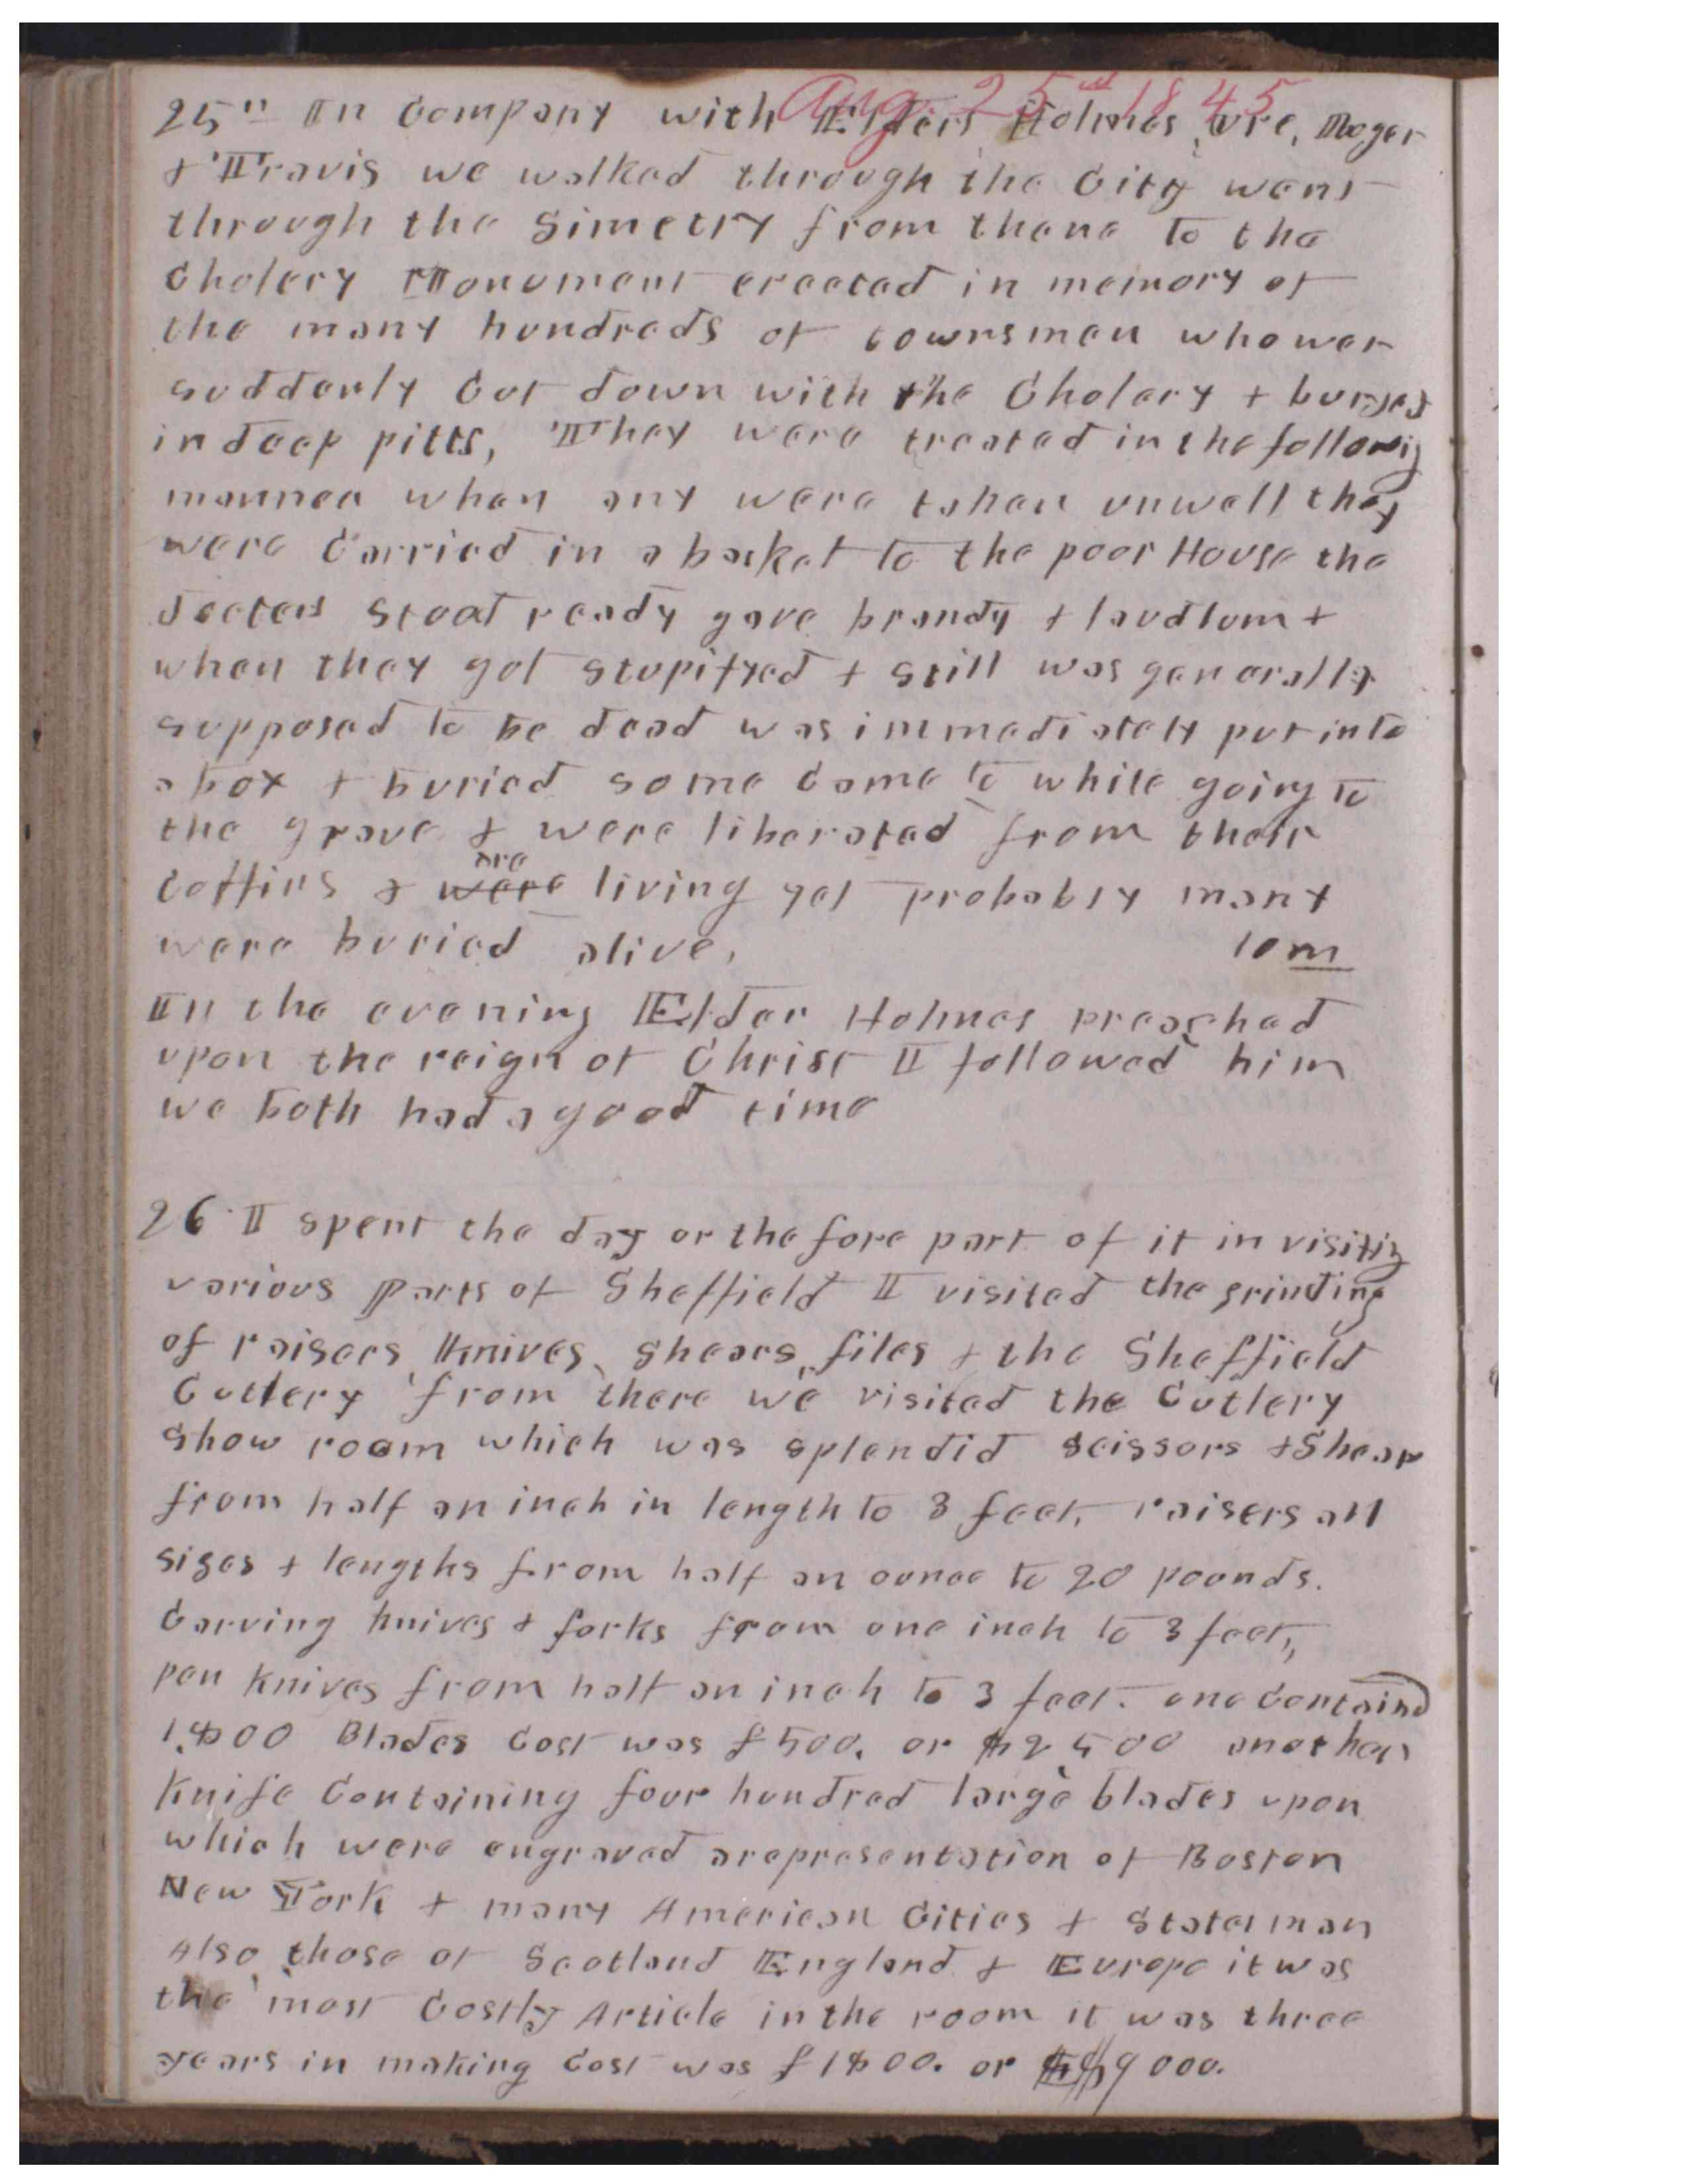 Aug. 25th 1845
25" In Company with Elders Holmes, Ure, Mager
+ Travis we walked through the City went
through the Simetry from thene to the
Cholery Monument erected in memory of
the many hundreds of townsmen who wer
suddenly Cut down with the Cholery + buryed
in deep pitts, They were treated in the followig
manner when any were taken unwell they
were Carried in a basket to the poor House the
docters stoat ready gave brandy + laudlum +
when they got stupifyed + still was generally
supposed to be dead was immediately put into
a box + buried some Came to while going to
the grave + were liberated from their
are
Coffins + were living yet probably many
were buried alive, 10 m
In the evening Elder Holmes preached
upon the reign of Christ I followed him
we both had a good time
26 I spent the day or the fore part of it in visitig
various parts of Sheffield I visited the grinding
of raisors, Knives, shears, files + the Sheffield
Cutlery from there we visited the Cutlery
Show room which was splendid scissors + Shear
from half an inch in length to 3 feet, raisers all
sizes + lengths from half an ounce to 20 pounds.
Carving knives + forks from one inch to 3 feet,
pen knives from half an inch to 3 feet. one Containd
1,800 Blades Cost was £500. or $2500 another
Knife Containing four hundred large blades upon
which were engraved a representation of Boston
New York + many American Cities + Statesman
Also those of Scotland England + Europe it was
the most Costly Article in the room it was three
years in making Cost was £1800. or $9000.